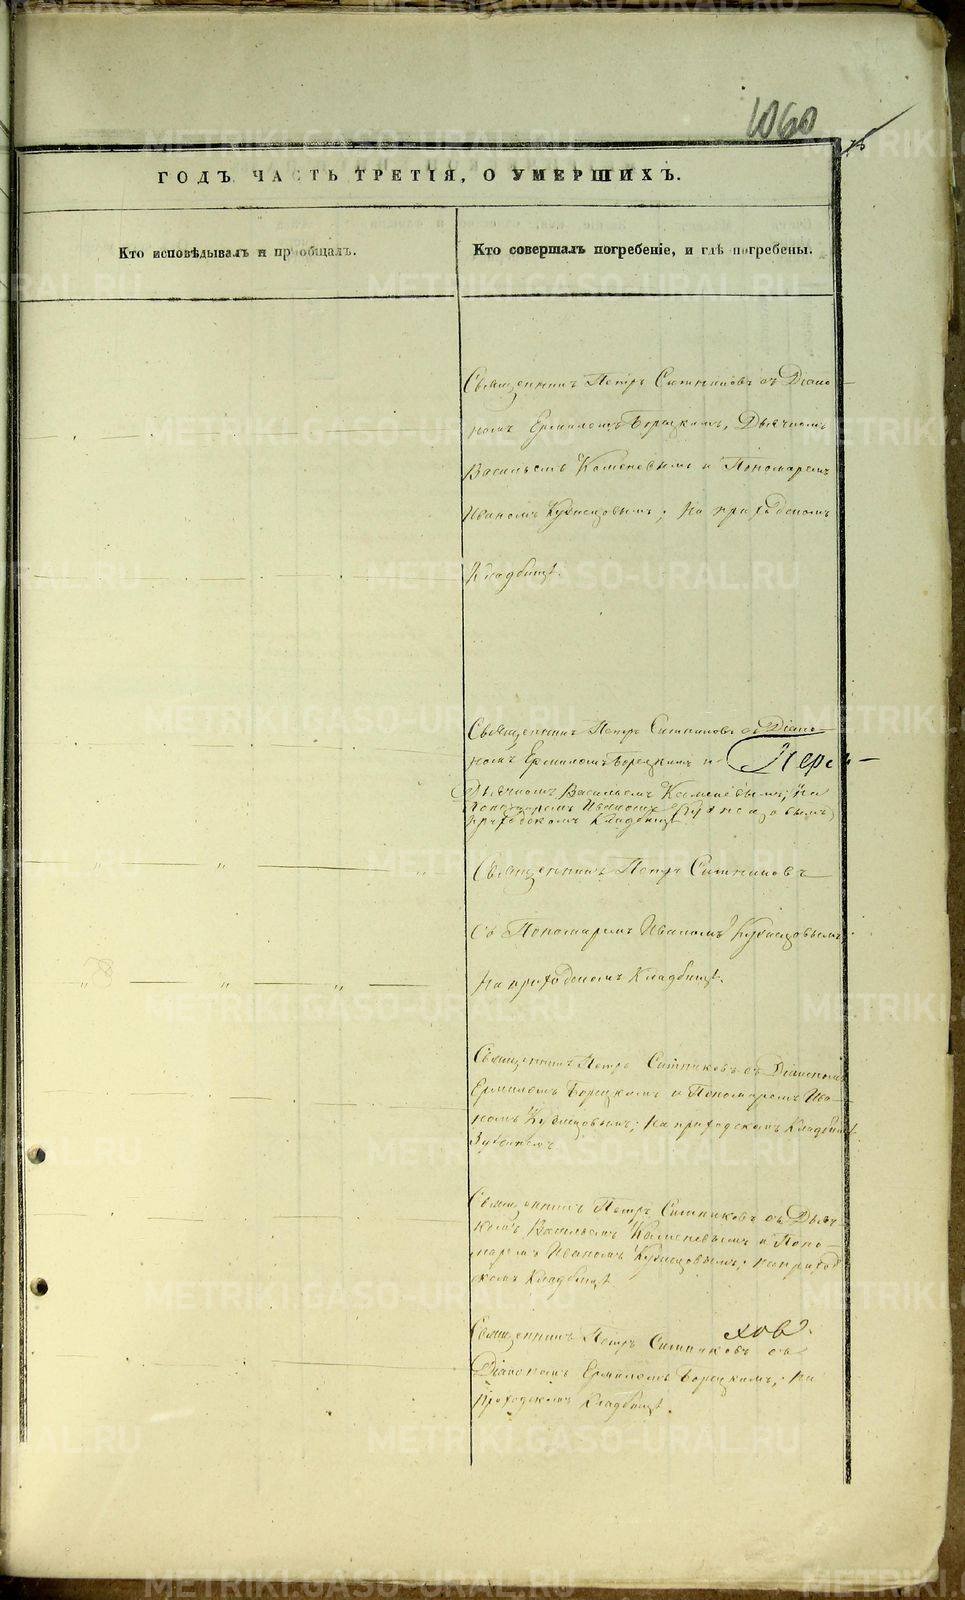 1060
ГОДЪ ЧАСТЬ ТРЕТІЯ, О УМЕРШИХЪ.
Кто исповѣдывалъ и пріобщалъ.
Кто совершалъ погребеніе, и гдѣ погребены.
Священникъ Петръ Ситниковъ съ Діако-
номъ Ермиломъ Борецкимъ, Дьячкомъ
Васильемъ Каменевымъ и Пономаремъ
Иваномъ Кузнецовымъ; На приходскомъ
Кладбищѣ.
Священникъ Петръ Ситниковъ съ Діако-
номъ Ермиломъ Борецкимъ и
Дьячкомъ Васильемъ Каменевымъ; На
Пономаремъ Иваномъ Кузнецовымъ
приходскомъ Кладбищѣ.
Священникъ Петръ Ситниковъ
Съ Пономаремъ Иваномъ Кузнецовымъ,
На приходскомъ Кладбищѣ.
Священникъ Петръ Ситниковъ съ Діакономъ
Ермиломъ Борецкимъ и Пономаремъ Ива-
номъ Кузнецовымъ; На приходскомъ Кладбищѣ
Священникъ Петръ Ситниковъ съ Дьяч-
комъ Васильемъ Каменевымъ и Поно-
маремъ Иваномъ Кузнецовымъ; на приход
скомъ Кладбищѣ
хов.
Священникъ Петръ Ситниковъ съ
Діакономъ Ермиломъ Борецкимъ, На
приходскомъ Кладбищѣ.
METRIKI.GASO-URAL.RU